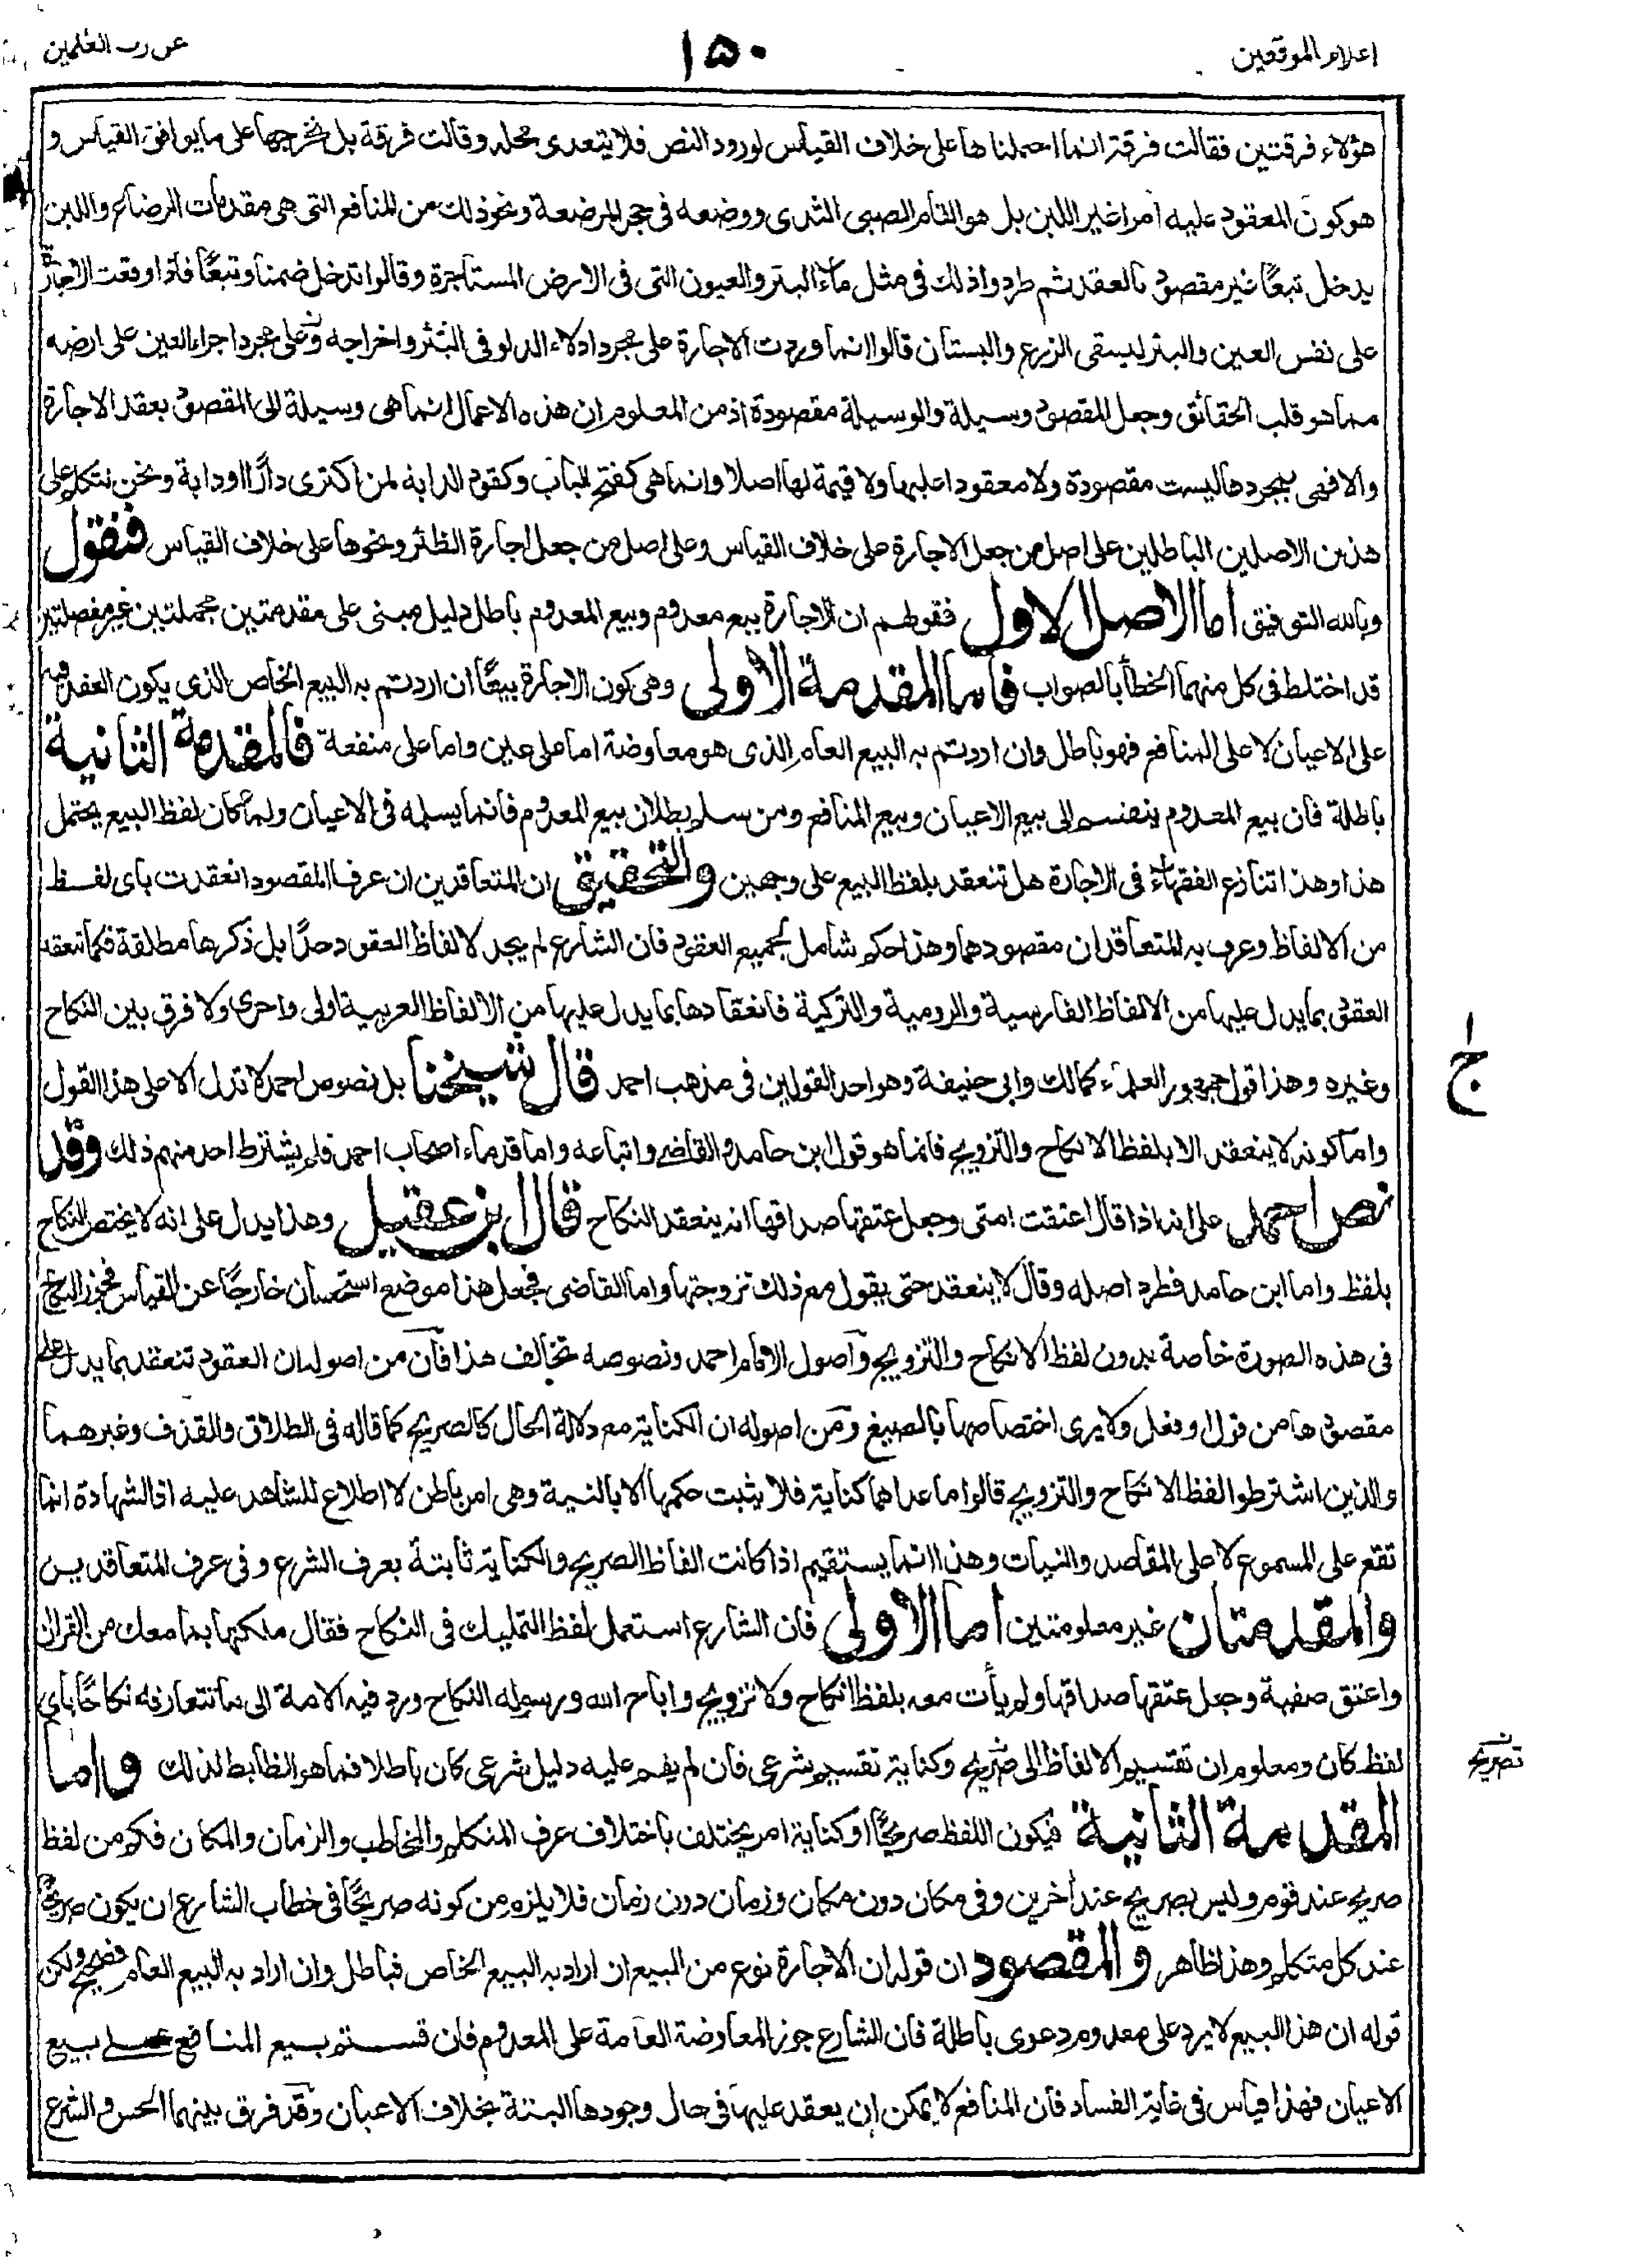 اعلام الموقعين
١٥٠
عن رب العلمين
هؤلاء فرقتين فقالت فرقة انما احملناها على خلاف القياس لورود النص فلا يتعدى محله وقالت فرقة بل نخرجها على ما يوافق القياس و
هو كون المعقود عليه امرا غير اللبن بل هو القام الصبى الثدى ووضعه فى حجر المرضعة ونحو ذلك من المنافع التى هى مقدمات الرضاع واللبن
يدخل تبعًا غير مقصود بالعقد ثم طردوا ذلك فى مثل ماء البئر والعيون التى فى الارض المستاجرة وقالوا تدخل ضمنا وتبعًا فاذا وقعت الاجارة
على نفس العين والبئر ليسقى الزرع والبستان قالوا انما وردت الاجارة على مجرد ادلاء الدلو فى البئر واخراجه وعلى مجرد اجراء العين على ارضه
مما هو قلب الحقائق وجعل المقصود وسيلة والوسيلة مقصودة اذ من المعلوم ان هذه الاعمال انما هى وسيلة الى المقصود بعقد الاجارة
والا فهى بمجردها ليست مقصودة ولا معقودا عليها ولا قيمة لها اصلا وانما هى كفتح الباب وكقود الدابه لمن اكترى دارًا او دابة ونحن نتكلم على
هذين الاصلين الباطلين على اصل من جعل الاجارة على خلاف القياس وعلى اصل من جعل اجارة الظئر ونحوها على خلاف القياس فنقول
وبالله التوفيق اما الاصل الاول فقولهم ان الاجارة بيع معدوم وبيع المعدوم باطل دليل مبنى على مقدمتين مجملتين غير مفصلتين
قد اختلط فى كل منهما الخطأ بالصواب فاما المقدمة الاولى وهى كون الاجارة بيعًا ان اردتم به البيع الخاص الذى يكون العقد فيه
على الاعيان لا على المنافع فهو باطل وان اردتم به البيع العام الذى هو معاوضة اما على عين واما على منفعة فالمقدمة الثانية
باطلة فان بيع المعدوم ينقسم الى بيع الاعيان وبيع المنافع ومن سلم بطلان بيع المعدوم فانما يسلمه فى الاعيان ولما كان لفظ البيع يحتمل
هذا وهذا تنازع الفقهاء فى الاجارة هل تنعقد بلفظ البيع على وجهين والتحقيق ان المتعاقدين ان عرفا المقصود انعقدت باى لفظ
من الالفاظ وعرف به المتعاقدان مقصودهما وهذا حكم شامل لجميع العقود فان الشارع لم يحد لالفاظ العقود حدًا بل ذكرها مطلقة فكما تنعقد
العقود بما يدل عليها من الالفاظ الفارسية والرومية والتركية فانعقادها بما يدل عليها من الالفاظ العربية اولى واحرى ولا فرق بين النكاح
وغيره وهذا قول جمهور العلماء كمالك وابى حنيفة وهو احد القولين فى مذهب احمد قال شيخنا بل نصوص احمد لا تدل الا على هذا القول
واما كونه لا ينعقد الا بلفظ الانكاح والتزويج فانما هو قول ابن حامد والقاضى واتباعه واما قدماء اصحاب احمد فلم يشترط احد منهم ذلك وقد
نص احمد على انه اذا قال اعتقت امتى وجعل عتقها صداقها انه ينعقد النكاح قال ابن عقيل وهذا يدل على انه لا يختص النكاح
بلفظ واما ابن حامد فطرد اصله وقال لا ينعقد حتى يقول مع ذلك تزوجتها واما القاضى فجعل هذا موضع استحسان خارجًا عن القياس فجوز النكاح
فى هذه الصورة خاصة بدون لفظ الانكاح والتزويج واصول الامام احمد ونصوصه تخالف هذا فان من اصوله ان العقود تنعقد بما يدل على
مقصودها من قول او فعل ولا يرى اختصاصها بالصيغ ومن اصوله ان الكناية مع دلالة الحال كالصريح كما قاله فى الطلاق والقذف وغيرهما
والذين اشترطوا لفظ الانكاح والتزويج قالوا ما عداهما كناية فلا يثبت حكمها الا بالنية وهى امر باطن لا اطلاع للشاهد عليه اذ الشهادة انما
تقع على المسموع لا على المقاصد والنيات وهذا انما يستقيم اذا كانت الفاظ الصريح والكناية ثابتة بعرف الشرع وفى عرف المتعاقدين
والمقدمتان غير معلومتين اما الاولى فان الشارع استعمل لفظ التمليك فى النكاح فقال ملكتكها بما معك من القران
واعتق صفية وجعل عتقها صداقها ولم يأت معه بلفظ انكاح ولا تزويج واباح الله ورسوله النكاح ورد فيه الامة الى ما تتعارفه نكاحًا باى
لفظ كان ومعلوم ان تقسيم الالفاظ الى صريح وكناية تقسيم شرعى فان لم يقم عليه دليل شرعى كان باطلا فما هو الضابط لذلك واما
المقدمة الثانية فيكون اللفظ صريحًا او كناية امر يختلف باختلاف عرف المتكلم والمخاطب والزمان والمكان فكم من لفظ
صريح عند قوم وليس بصريح عند أخرين وفى مكان دون مكان وزمان دون زمان فلا يلزم من كونه صريحًا فى خطاب الشارع ان يكون صريحًا
عند كل متكلم وهذا ظاهر والمقصود ان قوله ان الاجارة نوع من البيع ان اراد به البيع الخاص فباطل وان اراد به البيع العام فصحيح ولكن
قوله ان هذا البيع لا يرد على معدوم دعوى باطلة فان الشارع جوز المعاوضة العامة على المعدوم فان قستم بيع المنافع على بيع
الاعيان فهذا قياس فى غاية الفساد فان المنافع لا يمكن ان يعقد عليها فى حال وجودها البتة بخلاف الاعيان وقد فرق بينهما الحس والشرع
ج ١
تصريح